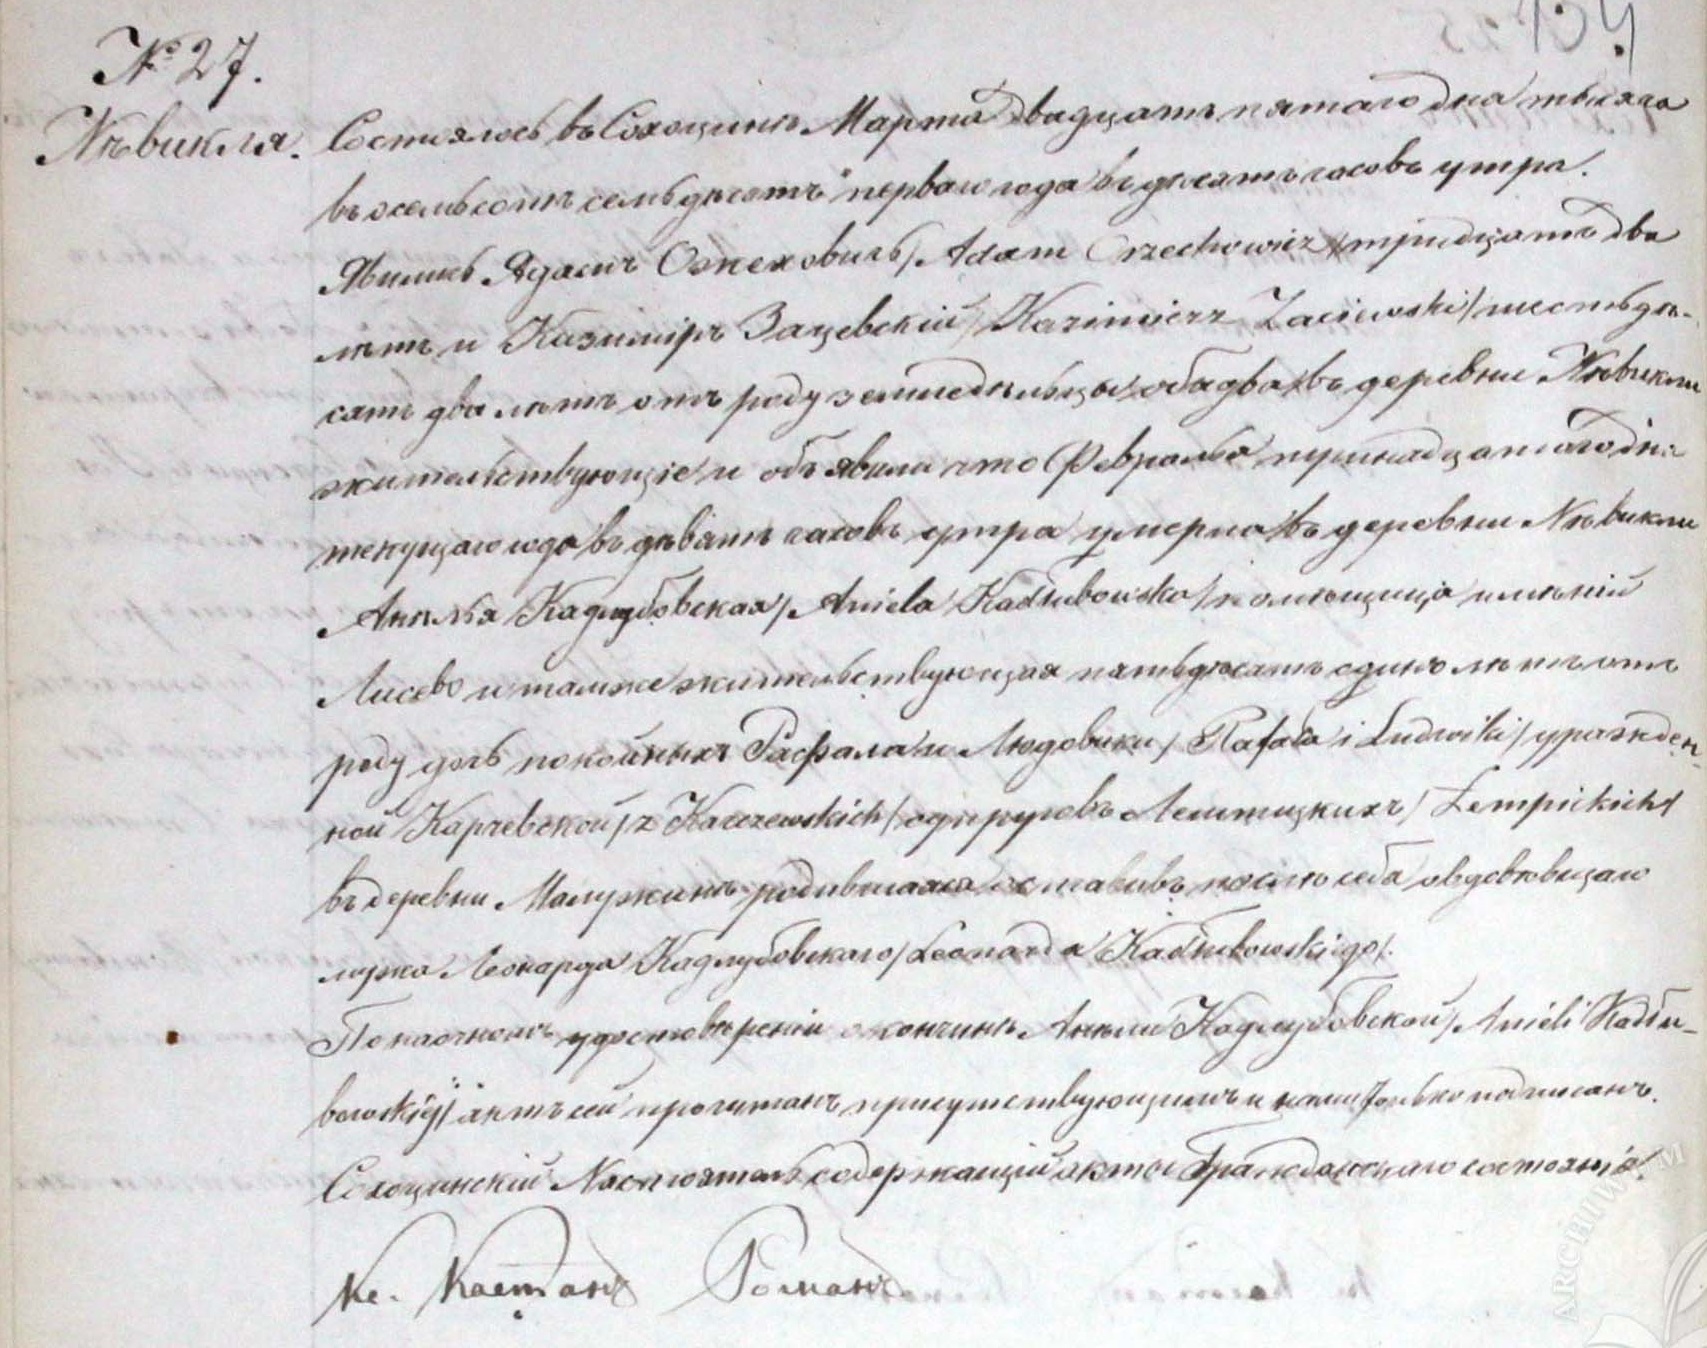 № 27.
Нѣвикля.
Состоялось въ Сохоцинѣ Марта двадцать пятаго дня тысяча
восемьсотъ семьдѣсятъ перваго года въ десять часовъ утра.
Явились Адамъ Ожеховичъ /Adam Orzechowicz/ тридцать два
лѣтъ и Казимiръ Зацевскiй /Kazimierz Zaciewski/ шестьдѣ-
сятъ два лѣтъ отъ роду земледѣльцы обадва въ деревни Нѣвикли
жительствующiе и объявили что Февраля тринадцатаго дня
текущаго года въ дѣвять часовъ утра умерла въ деревни Нѣвикли
Анѣля Кадлубовская /Aniela Kadłubowska/ помѣщица имѣнiй
Лисево и тамже жительствующая пятьдѣсятъ одинъ лѣтъ отъ
роду дочь покойныхъ Рафала и Людовики /Rafała i Ludwiki/ урожден-
ной Карчевской /z Karczewskich/ супруговъ Лемпицкихъ /Lempickich/
въ деревни Малужинъ родившаяся оставивъ послѣ себя овдовѣвшаго
мужа Леонарда Кадлубовскаго /Leonarda Kadłubowskiego/.
По наочномъ удостовѣренiи о кончинѣ Анѣли Кадлубовской /Anieli Kadłu-
bowskiéj/ актъ сей прочитанъ присутствующимъ и нами только подписанъ.
Сохоцинскiй Настоятель содержащiй акты Гражданскаго состоянiя.
Кс. Романъ